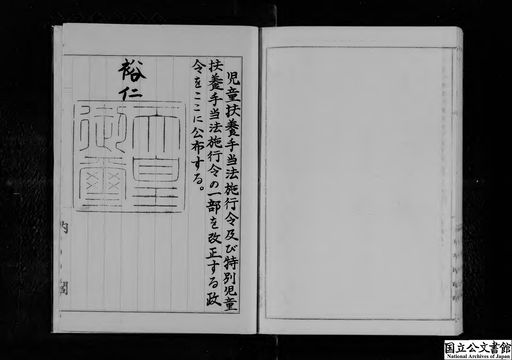 児童扶養手当法施行令及び特別児童
扶養手当法施行令の一部を改正する政
令をここに公布する。
裕仁
天皇
御璽
内閣
国立公文書館
National Archives of Japan